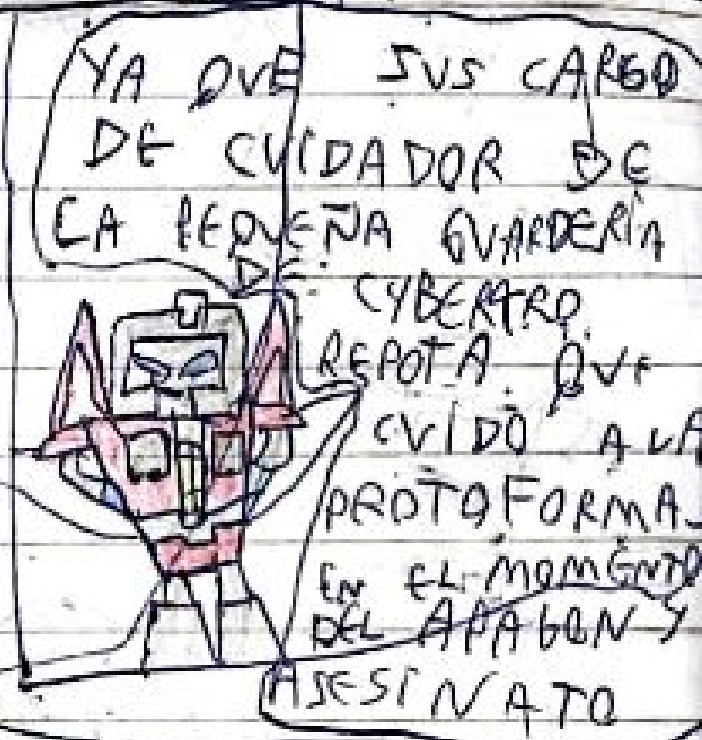 YA QUE SUS CARGO
DE CUIDADOR DE
LA PEQUEÑA GUARDERÍA
DE CYBERTRO
REPOTA QUE
CUIDO A LA
PROTOFORMA
EN EL MOMENTO
DEL APAGON Y
ASESINATO